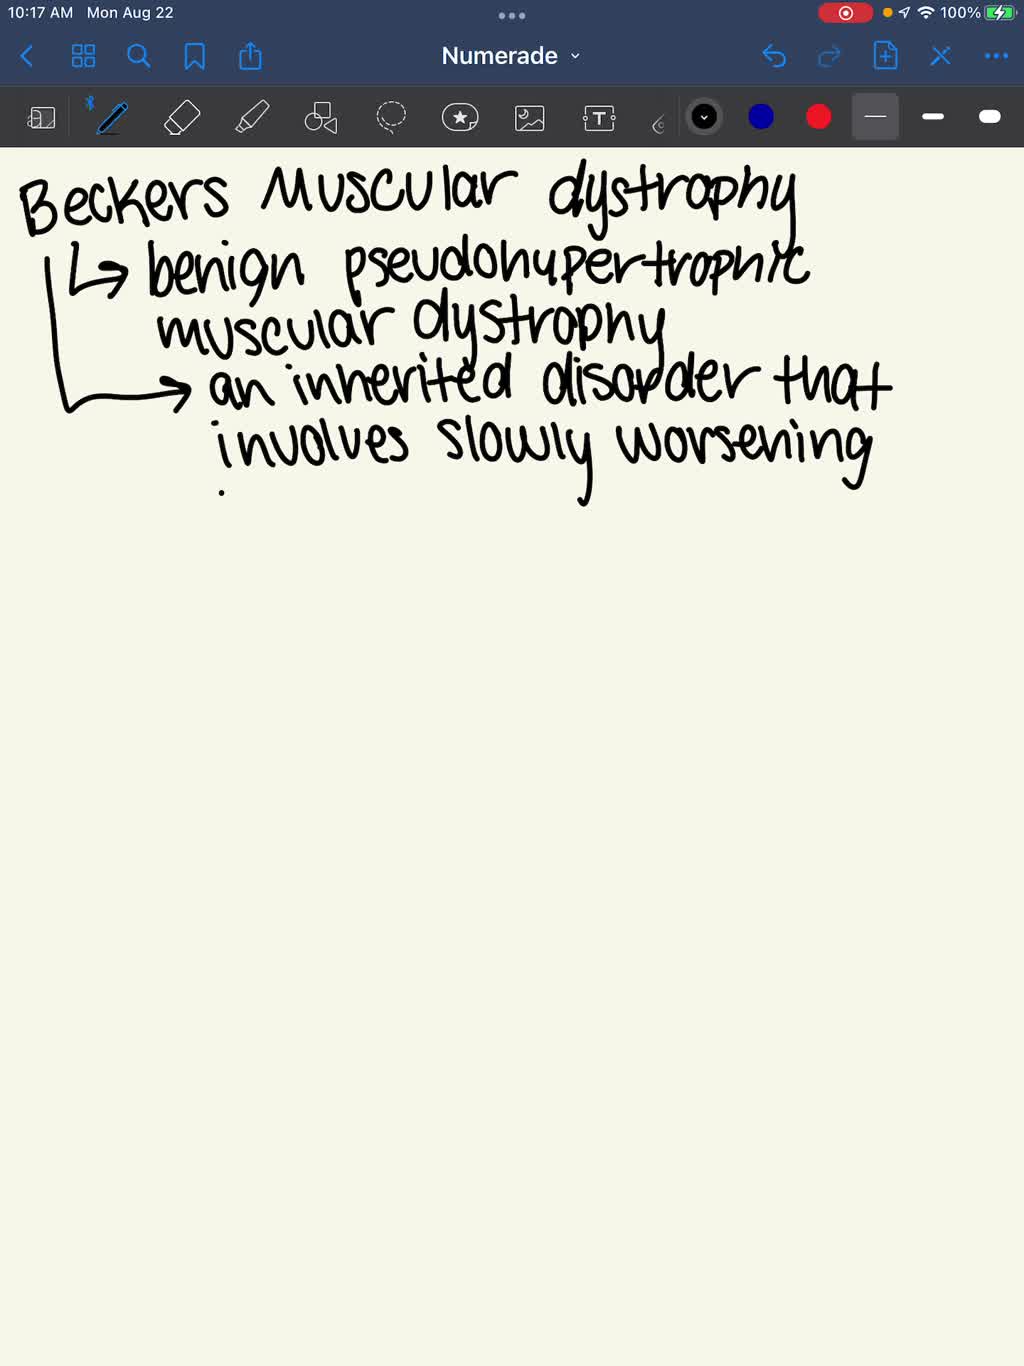 10:17 AM Mon Aug 22 100%
Numerade
T
Beckers Muscular dystrophy
benign pseudohypertrophic
muscular dystrophy
an inherited disorder that
involves slowly worsening